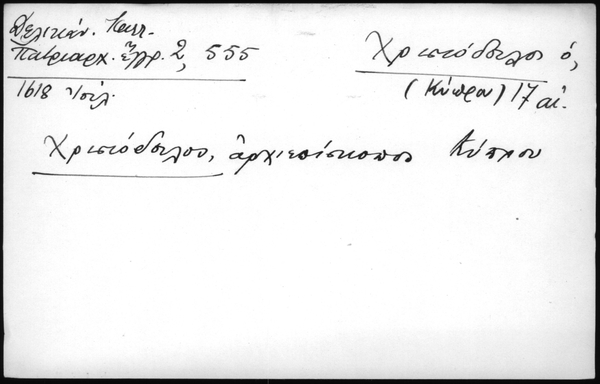 Δελικάν. Καλλ.
Πατριαρχ. Ἔγγρ. 2, 555
1618
Χριστόδουλος ὁ,
(Κύπρου) 17 αἰ.
Χριστόδουλος, ἀρχιεπίσκοπος Κύπρου